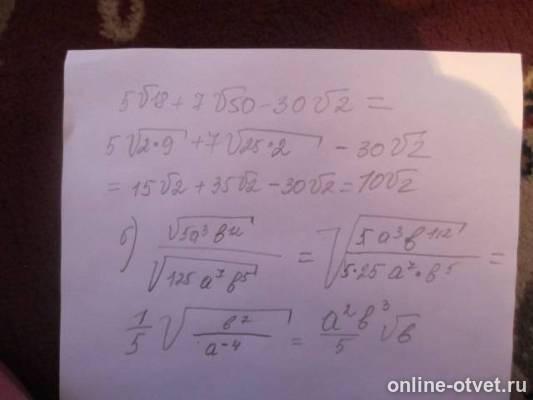 5√18 + 7√50 - 30√2 =
5√2·9 + 7√25·2 - 30√2
= 15√2 + 35√2 - 30√2 = 10√2
б) √5a³b¹² / √125a⁷b⁵ = √5a³b¹² / 5·25a⁷·b⁵ =
1/5 √b⁷/a⁻⁴ = a²b³/5 √b
online-otvet.ru